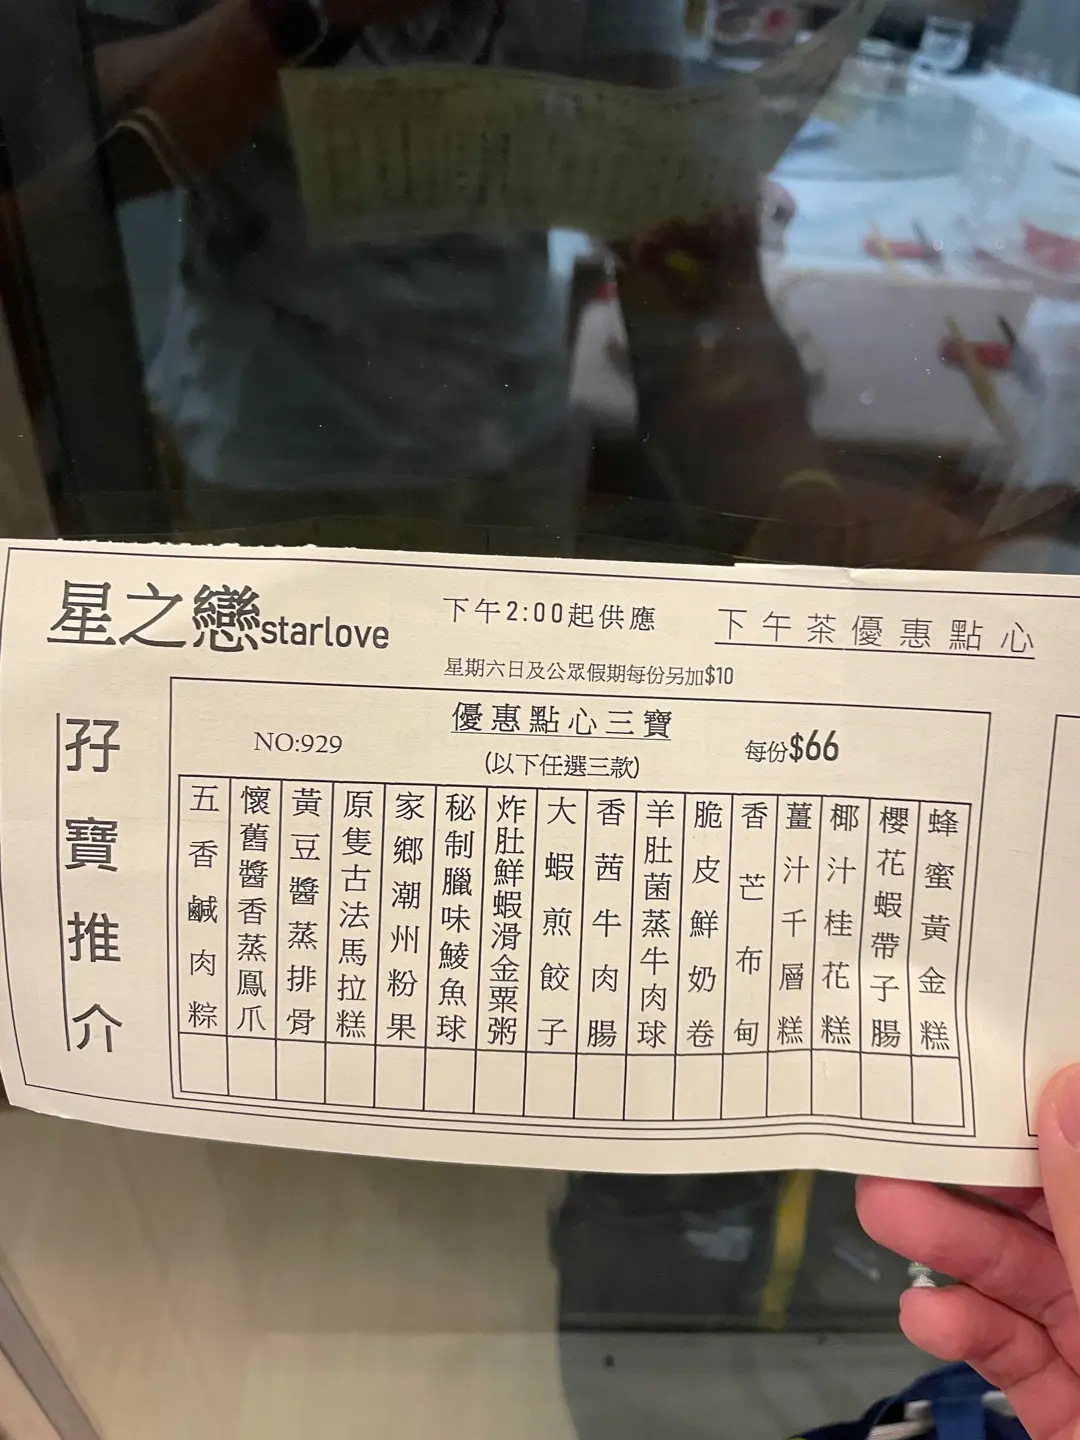 星之戀starlove
下午2:00起供應
下午茶優惠點心
星期六日及公眾假期每份另加$10
孖寶推介
優惠點心三寶
NO:929
(以下任選三款)
每份$66
五香鹹肉粽
懷舊醬香蒸鳳爪
黃豆醬蒸排骨
原隻古法馬拉糕
家鄉潮州粉果
秘制臘味鯪魚球
炸肚鮮蝦滑金粟粥
大蝦煎餃子
香茜牛肉腸
羊肚菌蒸牛肉球
脆皮鮮奶卷
香芒布甸
薑汁千層糕
椰汁桂花糕
櫻花蝦帶子腸
蜂蜜黃金糕